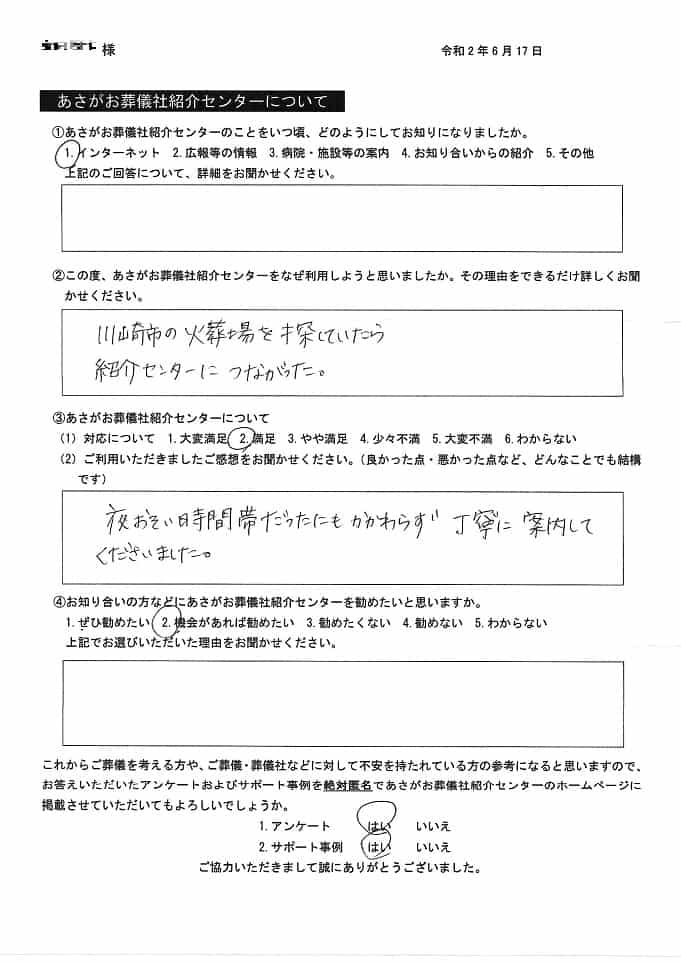 様
令和2年6月17日
あさがお葬儀社紹介センターについて
①あさがお葬儀社紹介センターのことをいつ頃、どのようにしてお知りになりましたか。
1.インターネット 2.広報等の情報 3.病院・施設等の案内 4.お知り合いからの紹介 5.その他
上記のご回答について、詳細をお聞かせください。
②この度、あさがお葬儀社紹介センターをなぜ利用しようと思いましたか。その理由をできるだけ詳しくお聞
かせください。
川崎市の火葬場を探していたら
紹介センターにつながった。
③あさがお葬儀社紹介センターについて
(1) 対応について 1.大変満足 2.満足 3.やや満足 4.少々不満 5.大変不満 6.わからない
(2) ご利用いただきましたご感想をお聞かせください。(良かった点・悪かった点など、どんなことでも結構
です)
夜おそい時間帯だったにもかかわらず 丁寧に案内して
くださいました。
④お知り合いの方などにあさがお葬儀社紹介センターを勧めたいと思いますか。
1.ぜひ勧めたい 2.機会があれば勧めたい 3.勧めたくない 4.勧めない 5.わからない
上記でお選びいただいた理由をお聞かせください。
これからご葬儀を考える方や、ご葬儀・葬儀社などに対して不安を持たれている方の参考になると思いますので、
お答えいただいたアンケートおよびサポート事例を絶対匿名であさがお葬儀社紹介センターのホームページに
掲載させていただいてもよろしいでしょうか。
1.アンケート はい いいえ
2.サポート事例 はい いいえ
ご協力いただきまして誠にありがとうございました。